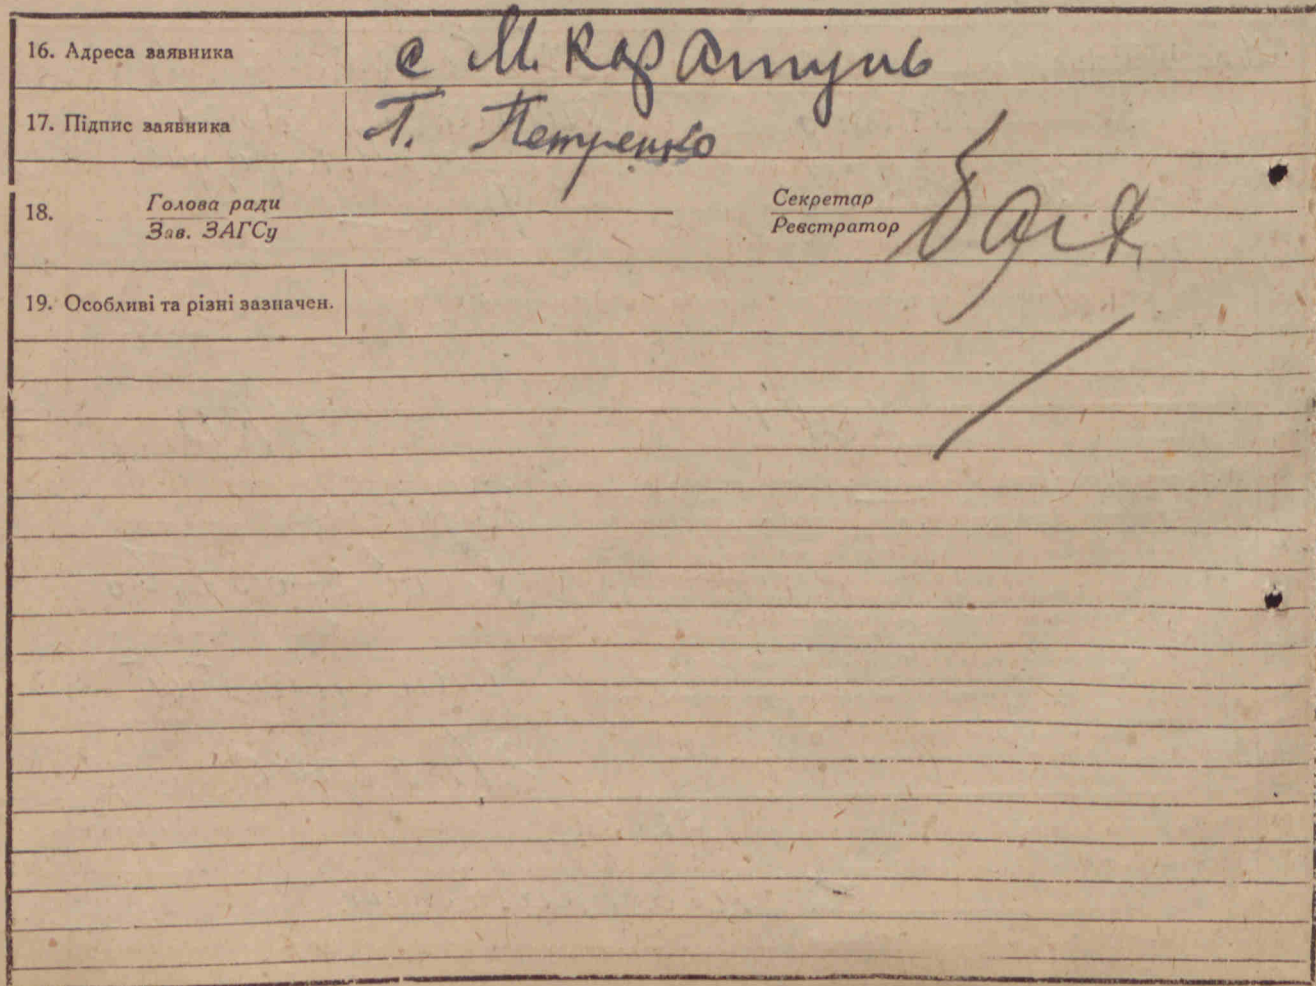 16. Адреса заявника с М. Каратуль
17. Підпис заявника П. Петренко
18. Голова ради Секретар
Зав. ЗАГСу Реєстратор
19. Особливі та різні зазначен.